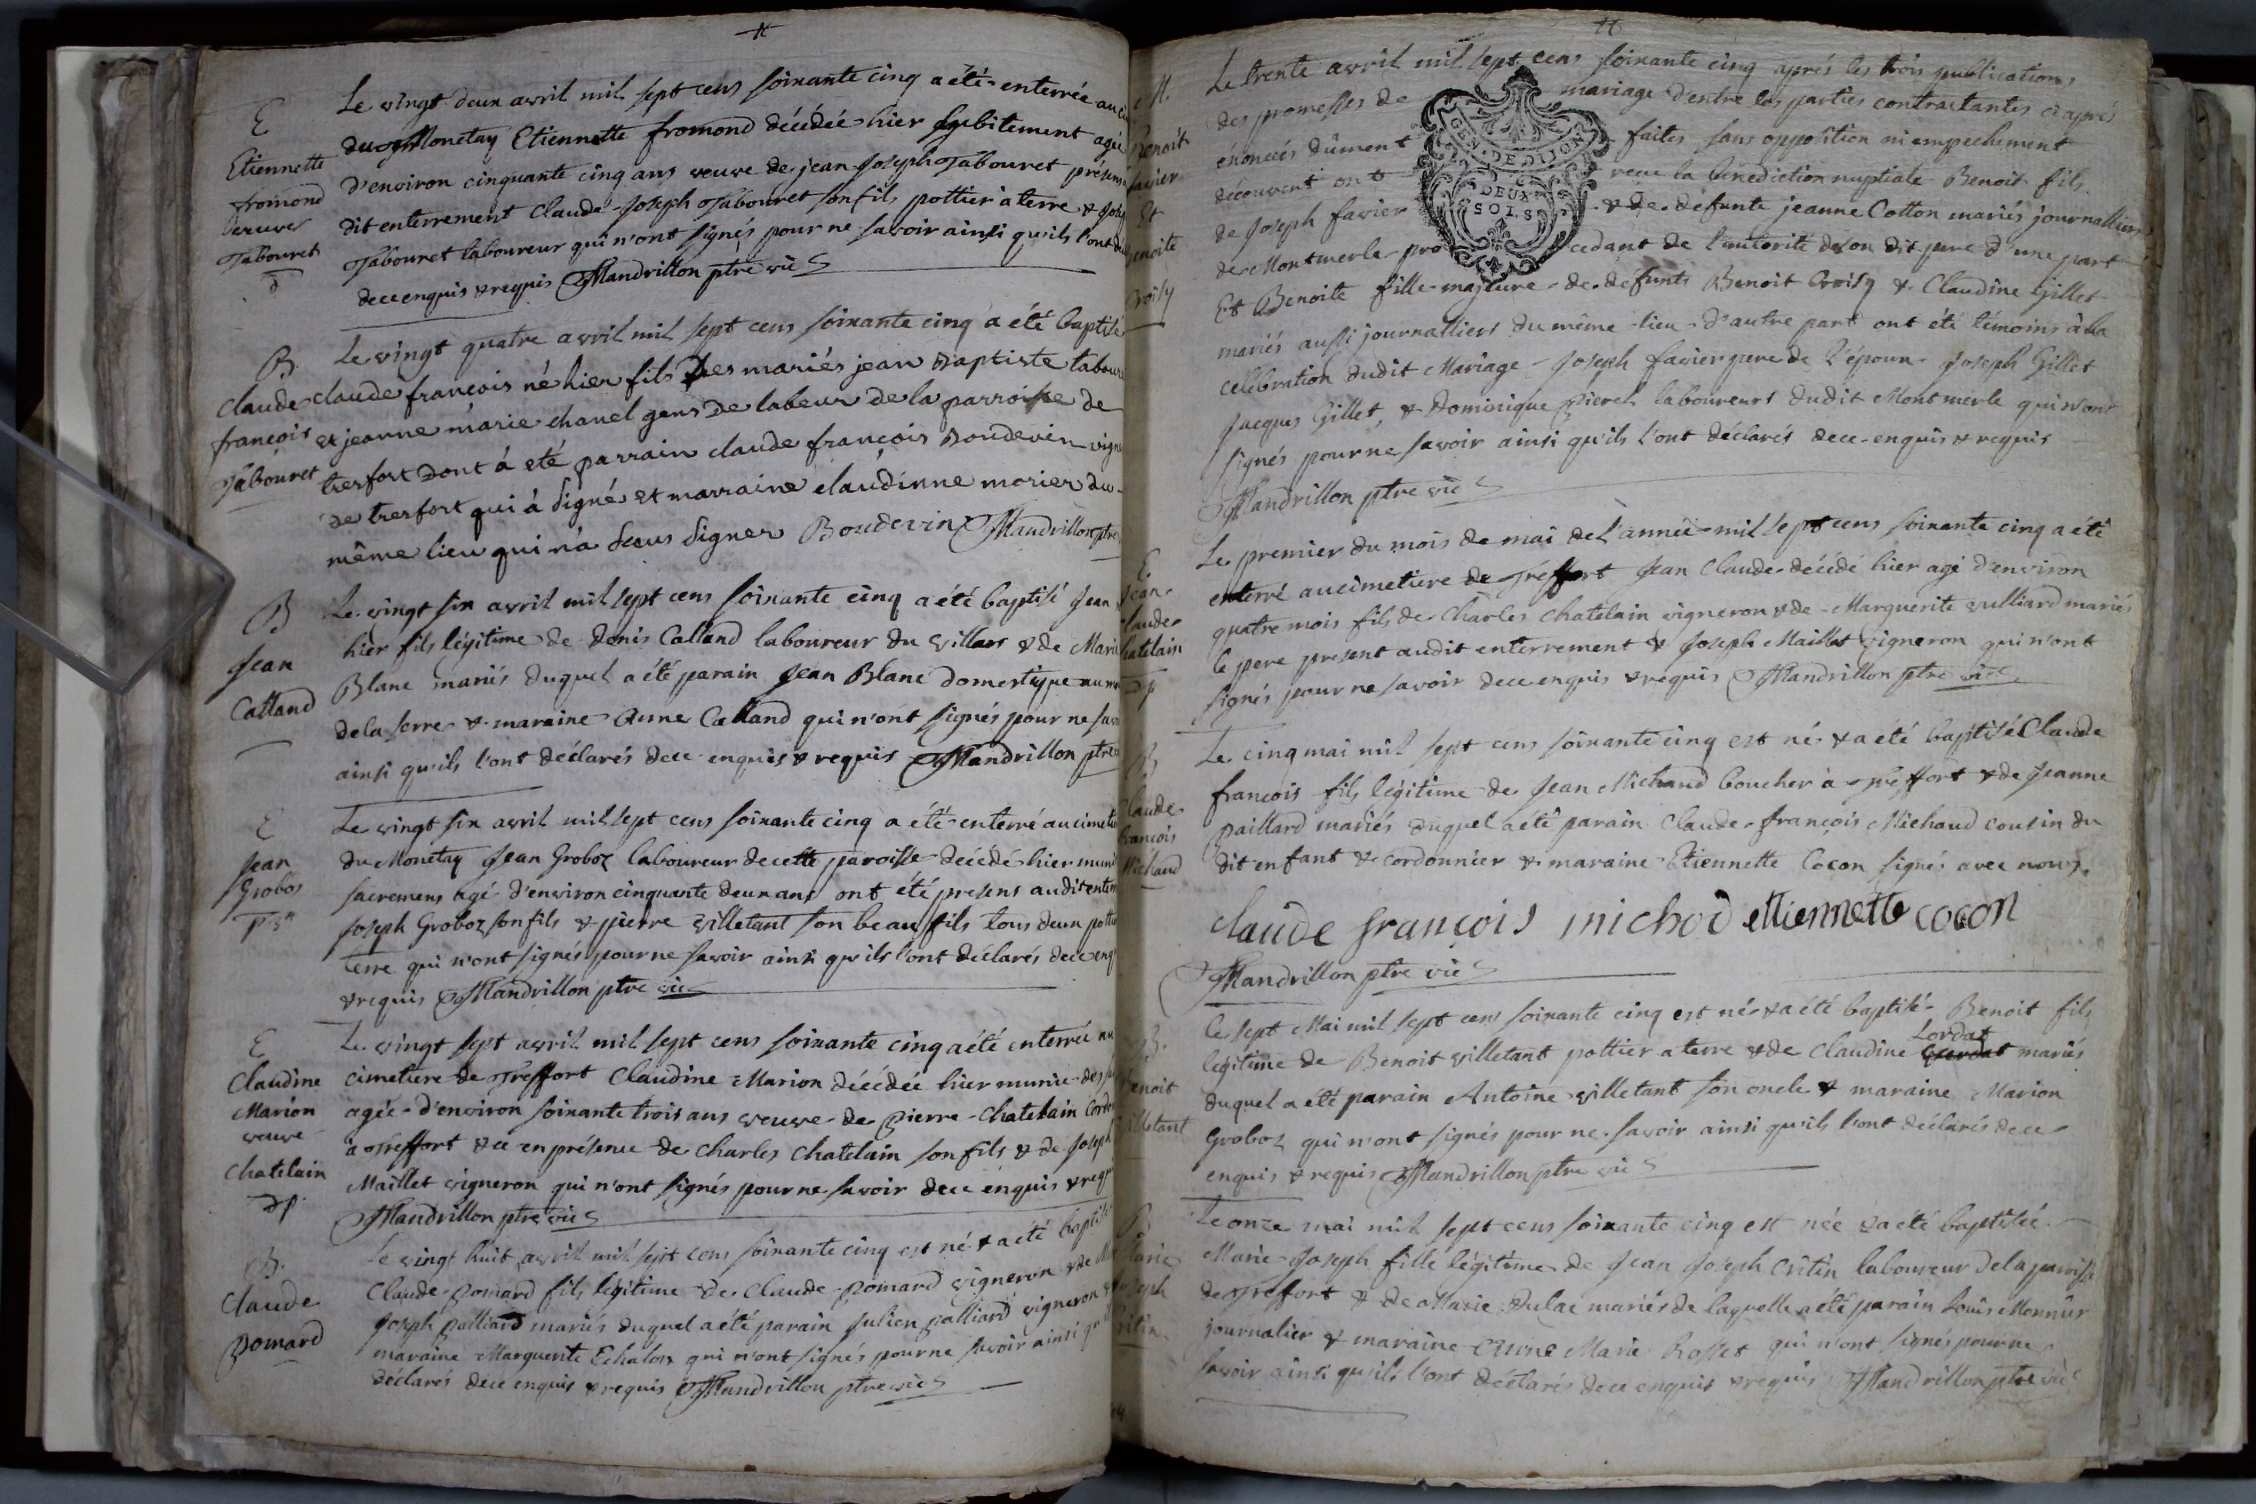 Le vingt deux avril mil sept cens soixante cinq a été enterrée au
du Monetay Etiennette fromond décédée hier subitement agée
d'environ cinquante cinq ans veuve de jean Joseph Tabouret présens
dit enterrement Claude Joseph Tabouret son fils pottier à terre &
Tabouret laboureur qui n'ont signés pour ne savoir ainsi qu'ils l'ont
de ce enquis & requis Mandrillon ptre vic
E
Etiennette
fromond
veuve
Tabouret
Le vingt quatre avril mil sept cens soixante cinq a été baptisé
claude françois né hier fils des mariés jean baptiste
et jeanne marie chanel gens de labeur de la parroisse de
treffort dont à eté parrain claude françois Boudevin
de treffort qui à signé et marraine claudinne morier du
même lieu qui n'a sceus signer Boudevin Mandrillon ptre
B
claude
françois
Tabouret
Le vingt six avril mil sept cens soixante cinq a été baptisé Jean
hier fils légitime de Denis Calland laboureur du villars & de Marie
Blanc mariés duquel a été parain Jean Blanc Domestique
de la serre & maraine Anne Calland qui n'ont signés pour ne
ainsi qu'ils l'ont déclarés de ce enquis & requis Mandrillon ptre
B
Jean
Calland
Le vingt six avril mil sept cens soixante cinq a été enterré au
du Monetay Jean Groboz laboureur de cette paroisse décédé hier
sacremens agé d'environ cinquante deux ans ont été presens audit
Joseph Groboz son fils & pierre villetant son beau fils tous deux
terre qui n'ont signés pour ne savoir ainsi qu'ils l'ont déclarés de ce
& requis Mandrillon ptre vic
E
Jean
Groboz
Le vingt sept avril mil sept cens soixante cinq a été enterrée au
cimetiere de Treffort Claudine Marion décédée hier munie des
agée d'environ soixante trois ans veuve de pierre Chatelain
à Treffort & ce en présence de Charles Chatelain son fils & de Joseph
Maillet vigneron qui n'ont signés pour ne savoir de ce enquis &
Mandrillon ptre vic
E
Claudine
Marion
veuve
Chatelain
Le vingt huit avril mil sept cens soixante cinq est né & a été
Claude Pomard fils légitime de Claude Pomard vigneron & de
Joseph palliard mariés duquel a été parain Julien palliard vigneron
maraine Marguerite Echalon qui n'ont signés pour ne savoir ainsi
déclarés de ce enquis & requis Mandrillon ptre vic
B
Claude
Pomard
Le trente avril mil sept cens soixante cinq aprés les trois publications
des promesses de mariage d'entre les parties contractantes ci aprés
énoncées dûment faites sans opposition ni empechement
découvert ont reçu la bénédiction nuptiale Benoit fils
de Joseph favier & de défunte jeanne Cotton mariés journalliers
de Montmerle procedant de l'autorité de son dit pere d'une part
Et Benoite fille majeure de défunts Benoit Croisy & Claudine Gillet
mariés aussi journalliers du même lieu d'autre part ont été témoins à la
célébration dudit Mariage Joseph favier pere de l'époux Joseph Gillet
Jacques Gillet, & Dominique laboureurs dudit Montmerle qui n'ont
signés pour ne savoir ainsi qu'ils l'ont déclarés de ce enquis & requis
Mandrillon ptre vic
GEN. DE DIJON
DEUX
SOLS
Le premier du mois de mai de l'année mil sept cens soixante cinq a été
enterré au cimetiere de Treffort Jean Claude décédé hier agé d'environ
quatre mois fils de Charles Chatelain vigneron & de Marguerite vulliard mariés
le pere present audit enterrement & Joseph Maillet vigneron qui n'ont
signés pour ne savoir de ce enquis & requis Mandrillon ptre vic
Le cinq mai mil sept cens soixante cinq est né & a été baptisé Claude
françois fils légitime de Jean Michaud boucher à Treffort & de Jeanne
paillard mariés duquel a été parain Claude françois Michaud cousin du
dit enfant & cordonnier & maraine Etiennette Cocon signés avec nous
claude françois michod ettiennette cocon
Mandrillon ptre vic
Le sept Mai mil sept cens soixante cinq est né & a été baptisé Benoit fils
légitime de Benoit villetant pottier a terre & de Claudine Lordat mariés
duquel a été parain Antoine villetant son oncle & maraine Marion
Groboz qui n'ont signés pour ne savoir ainsi qu'ils l'ont déclarés de ce
enquis & requis Mandrillon ptre vic
Le onze mai mil sept cens soixante cinq est née & a été baptisée
Marie Joseph fille légitime de Jean Joseph Critin laboureur de la paroisse
de Treffort & de Marie Dulac mariés de laquelle a été parain Louis Monnier
journalier & maraine Anne Marie Rosset qui n'ont signés pour ne
savoir ainsi qu'ils l'ont déclarés de ce enquis & requis Mandrillon ptre vic